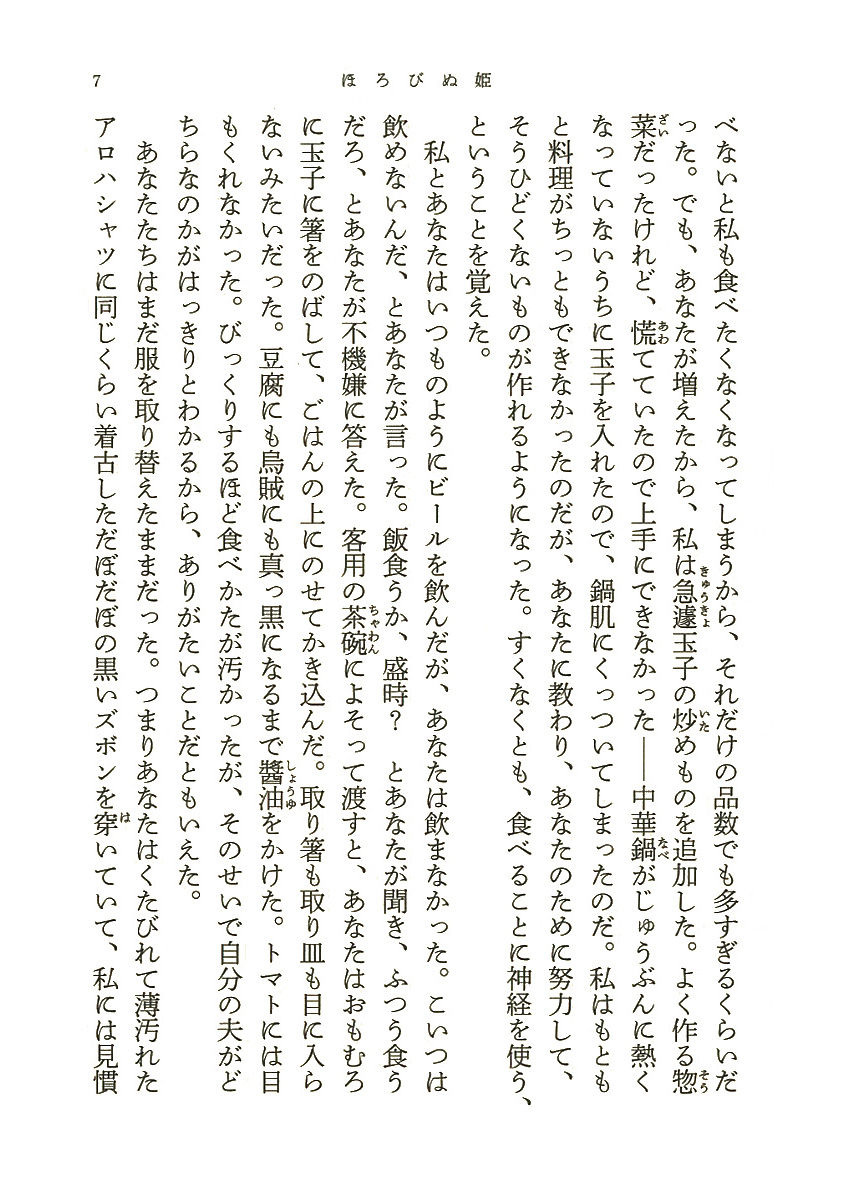 7
ほろびぬ姫
べないと私も食べたくなくなってしまうから、それだけの品数でも多すぎるくらいだ
った。でも、あなたが増えたから、私は急遽玉子の炒めものを追加した。よく作る惣
菜だったけれど、慌てていたので上手にできなかった――中華鍋がじゅうぶんに熱く
なっていないうちに玉子を入れたので、鍋肌にくっついてしまったのだ。私はもとも
と料理がちっともできなかったのだが、あなたに教わり、あなたのために努力して、
そうひどくないものが作れるようになった。すくなくとも、食べることに神経を使う、
ということを覚えた。
私とあなたはいつものようにビールを飲んだが、あなたは飲まなかった。こいつは
飲めないんだ、とあなたが言った。飯食うか、盛時?　とあなたが聞き、ふつう食う
だろ、とあなたが不機嫌に答えた。客用の茶碗によそって渡すと、あなたはおもむろ
に玉子に箸をのばして、ごはんの上にのせてかき込んだ。取り箸も取り皿も目に入ら
ないみたいだった。豆腐にも烏賊にも真っ黒になるまで醬油をかけた。トマトには目
もくれなかった。びっくりするほど食べかたが汚かったが、そのせいで自分の夫がど
ちらなのかがはっきりとわかるから、ありがたいことだともいえた。
あなたたちはまだ服を取り替えたままだった。つまりあなたはくたびれて薄汚れた
アロハシャツに同じくらい着古しただぼだぼの黒いズボンを穿いていて、私には見慣